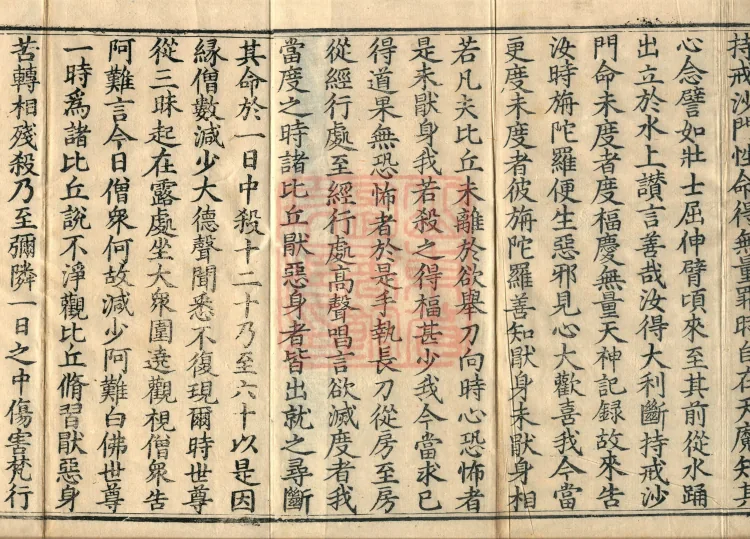 持戒沙門性命得無量罪時自在天魔知其
心念譬如壯士屈伸臂頃來至其前從水踊
出立於水上讃言善哉汝得大利斷持戒沙
門命未度者度福慶無量天神記録故來告
汝時旃陀羅便生惡邪見心大歡喜我今當
更度未度者彼旃陀羅善知猒身未猒身相
若凡夫比丘未離於欲舉刀向時心恐怖者
是未猒身我若殺之得福甚少我今當求已
得道果無恐怖者於是手執長刀從房至房
從經行處至經行處高聲唱言欲滅度者我
當度之時諸比丘猒惡身者皆出就之尋斷
其命於一日中殺十二十乃至六十以是因
縁僧數減少大德聲聞悉不復現爾時世尊
從三昧起在露處坐大衆圍遶觀視僧衆告
阿難言今日僧衆何故減少阿難白佛世尊
一時爲諸比丘說不淨觀比丘脩習猒惡身
苦轉相殘殺乃至彌隣一日之中傷害梵行